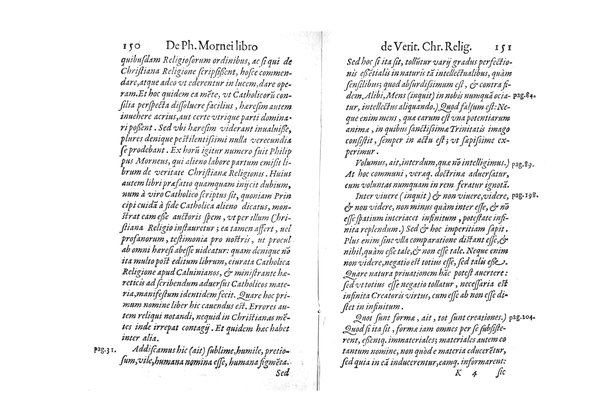 150 De Ph. Mornei libro
quibusdam Religiosorum ordinibus, ac si qui de
Christiana Religione scripsissent, hosce commen-
dare, atque adeo vt ederentur in lucem, dare ope-
ram. Et hoc quidem eâ mẽte, vt Catholicorũ con-
silia perspecta dissoluere facilius, hæresim autem
inuehere acrius, aut certe vtrique parti domina-
ri possent. Sed vbi hæresim viderant inualuisse,
plures denique pestilentissimi nulla verecundia
se prodebant. Ex horũ igitur numero fuit Philip
pus Morneus, qui alieno labore partum emisit li-
brum de veritate Christianæ Religionis. Huius
autem libri præfatio quamquam inijcit dubium,
num à viro Catholico scriptus sit, quoniam Prin
cipi cuidã à fide Catholica alieno dicatus, mon-
strat eam esse auctoris spem, vt per illum Chri-
stiana Religio instauretur; ea tamen affert, vel
profanorum, testimonia pro nostris, vt procul
ab omni hæresi abesse uideatur: quam denique nõ
ita multo post editum librum, eiurata Catholica
Religione apud Caluinianos, & ministrante hæ-
reticis ad scribendum aduersus Catholicos mate-
ria, manifestum identidem fecit. Quare hoc pri-
mum nomine liber hic cauendus est. Errores au-
tem reliqui notandi, nequid in Christianas mẽ-
tes inde irrepat contagij. Et quidem hæc habet
inter alia.
pag. 31. Addiscamus hic (ait) sublime, humile, pretio-
sum, vile, humana nomina esse, humana figmẽta.
Sed
de Verit. Chr. Relig. 151
Sed hoc si ita sit, tolluntur varij gradus perfectio-
nis essẽtialis in naturis tã intellectualibus, quàm
sensilibus; quod absurdissimum est, & contra fi-
dem. Alibi, Mens (inquit) in nobis numquã ocia- pag. 84.
tur, intellectus aliquando.) Quod falsum est: Ne-
que enim mens, quæ earum est vna potentiarum
animæ, in quibus sanctissimæ Trinitatis imago
consistit, semper in actu est; vt sæpissime ex-
perimur.
Volumus, ait, interdum, quæ nõ intelligimus.) pag. 89.
At hoc communi, veraq. doctrinæ aduersatur,
cum voluntas numquam in rem feratur ignotã.
Inter viuere (inquit) & non viuere, videre, pag. 198.
& non videre, non minus quàm inter esse, & nõ
esse spatium interiacet infinitum, potestate infi-
nita replendum.) Sed & hoc imperitiam sapit.
Plus enim sine vlla comparatione distant esse, &
nihil, quàm esse tale, & non esse tale. Neque enim
non videre, negatio est totius esse, sed talis esse.
Quare natura priuationem hãc potest auertere:
sed vt totius esse negatio tollatur, necessaria est
infinita Creatoris virtus, cum esse ab non esse di-
stet in infinitum.
Quot sunt formæ, ait, tot sunt creationes.) pag. 104.
Quod si ita sit, formæ iam omnes per se subsiste-
rent, essentq. immateriales; materia autem eo
tantum nomine, non quòd e materia educerẽtur,
sed quia in eã inducerentur, eamq. informarent:
K 4 sic